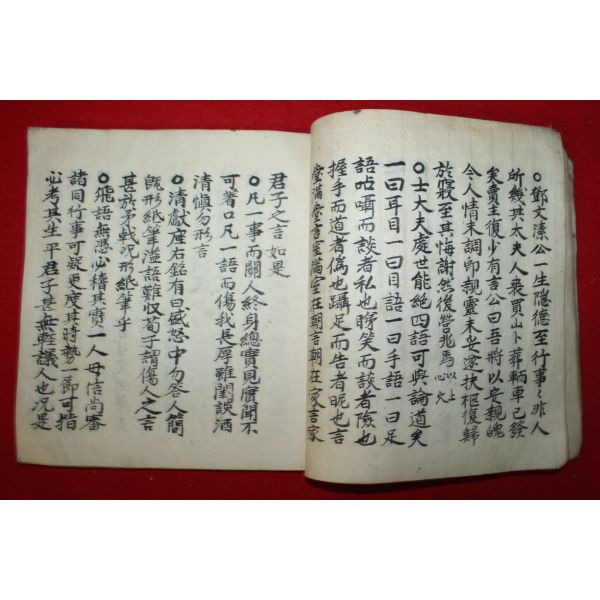 ○鄧文潔公一生隱德至行事〻非人
所幾其太夫人喪買山卜葬輌車已發
矣賣主復少有言公曰吾將以安親魄
令人情未調卽親靈未妥遂扶柩復歸
於寢至其悔謝然後營兆焉 以上心火
○士大夫處世能絶四語可與論道矣
一曰耳目一曰目語一曰手語一曰足
語呫囁而談者私也睜笑而談者險也
握手而道者僞也躡足而告者昵也言
堂滿堂言室滿室在朝言朝在家言家
君子之言如是
○凡一事而關人終身總實見實聞不
可著口凡一語而傷我長厚雖閒談酒
清愼勿形言
○清獻座右銘有曰盛怒中勿答人簡
旣形紙筆溢語難収荀子謂傷人之言
甚於矛戟况形紙筆乎
○飛語無憑必稽其實一人毋信尚審
諸同行事可疑更度其時勢一節可指
必考其生平君子甚無輕議人也况是